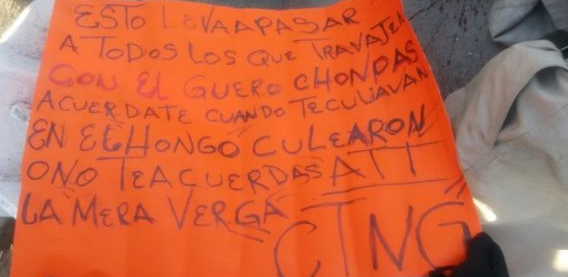 ESTO LEVAAPASAR
A TODOS LOS QUE TRAVAJEN
CON EL GUERO CHONPAS
ACUERDATE CUANDO TECULIAVAN
EN ELHONGO CULEARON
ONO TEACUERDAS ATT
LA MERA VERGA
CJNG